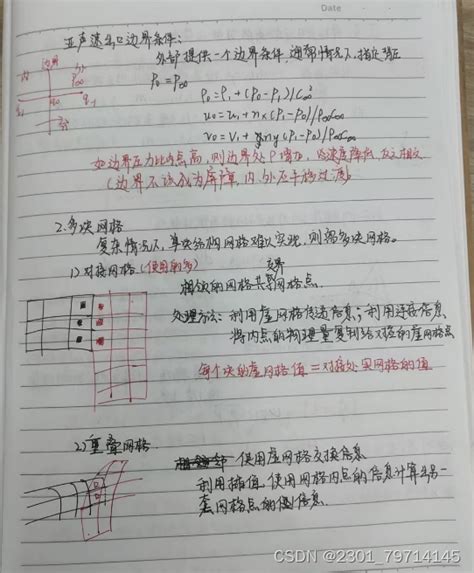 Date
亚声速出口边界条件：
外部提供一个边界条件，通常情况下，指定背压
P₀ = P∞
ρ₀ = ρ₁ + (P₀ - P₁)/C∞²
u₀ = u₁ + nx(P₁ - P₀)/ρ∞C∞
v₀ = v₁ + ny(P₁ - P₀)/ρ∞C∞
如边界压力比内点高，则边界处ρ增加，法速度降低，反之相反
（边界不该成为屏障，内、外应平稳过渡）
2.多块网格
复杂情况下，单块结构网格难以实现，则需多块网格。
1）对接网格（使用的多）
相邻的网格共享网格点
交界
处理方法：利用虚网格传递信息；利用连接信息
将内点的物理量复制给对应的虚网格点
每个块的虚网格值=对接处实网格的值
2）重叠网格
使用虚网格交换信息
利用插值，使用网格内点的信息计算出另一
套网格点的信息
CSDN @2301_79714145